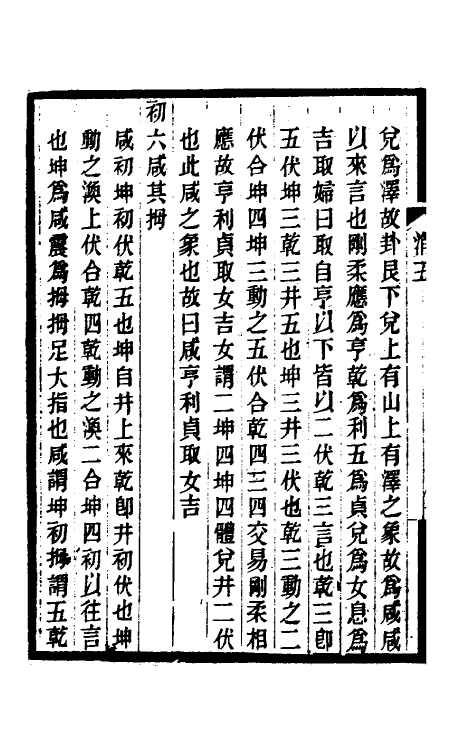 兌爲澤故卦艮下兌上有山上有澤之象故爲咸咸
以來言也剛柔應爲亨乾爲利五爲貞兌爲女息爲
吉取婦曰取自亨以下皆以二伏乾三言也乾三卽
五伏坤三乾三井五也坤三井三伏也乾三動之二
伏合坤四坤三動之五伏合乾四三四交易剛柔相
應故亨利貞取女吉女謂二坤四坤四體兌井二伏
也此咸之象也故曰咸亨利貞取女吉
初六咸其拇
咸初坤初伏乾五也坤自井上來乾卽井初伏也坤
動之渙上伏合乾四乾動之渙二合坤四初以往言
也坤爲咸震爲拇拇足大指也咸謂坤初拇謂五乾